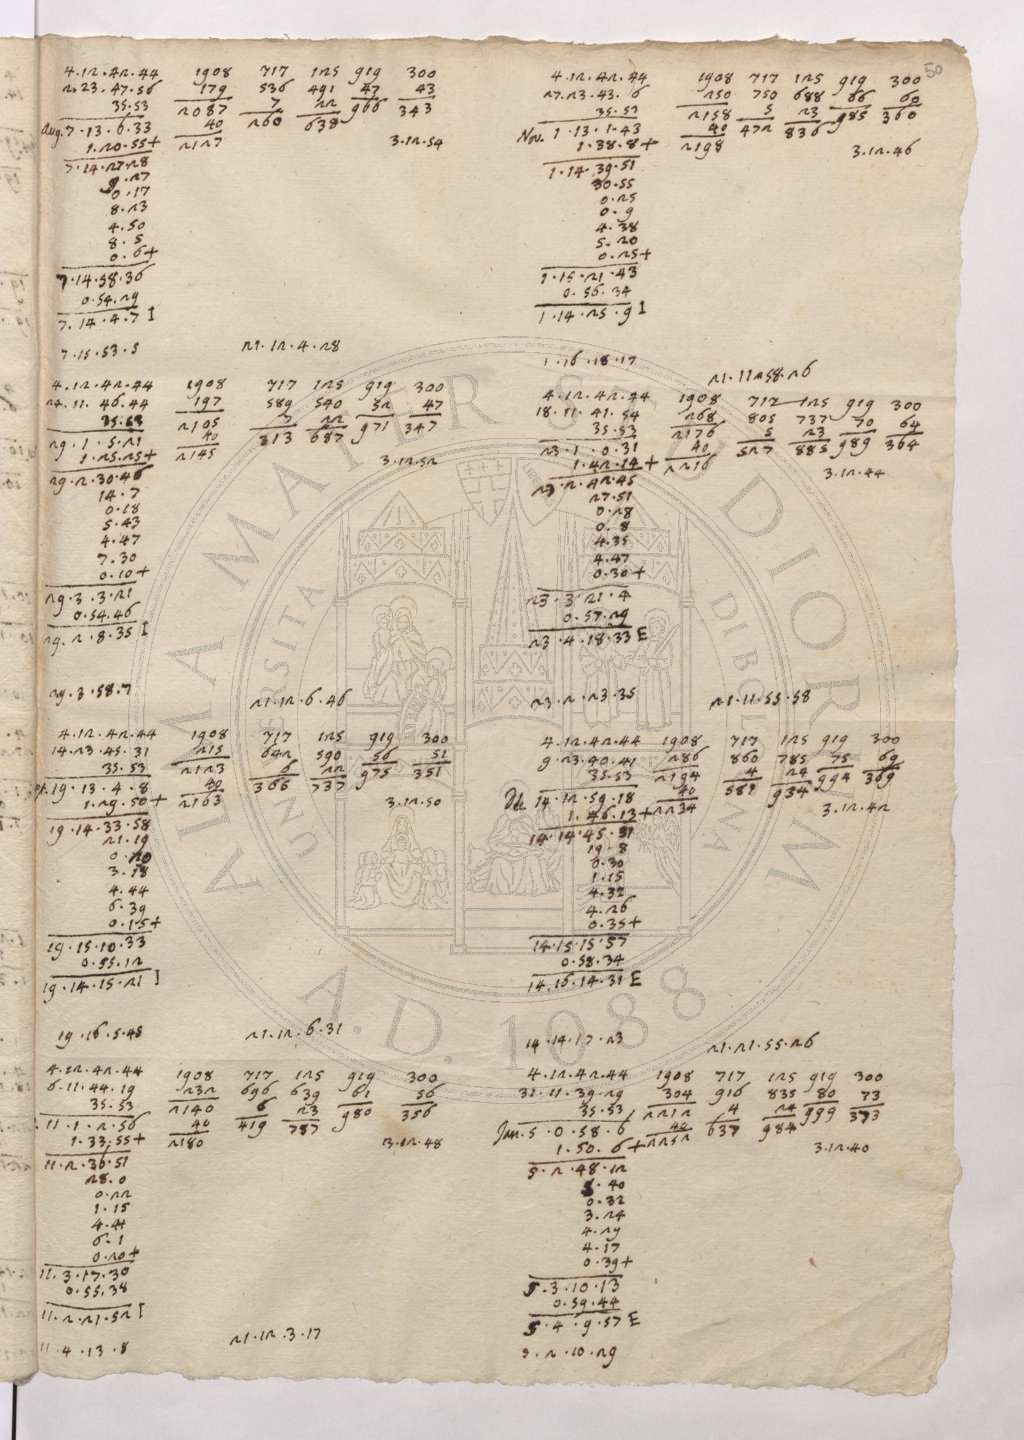 50
4.12.42.44 1908 717 125 919 300
2.23.47.56 179 536 491 47 43
35.53 2087 7 22 966 343
Aug. 7.13.6.33 40 260 638
1.20.55+ 2127 3.12.54
7.14.27.28
9.27
0.17
8.23
4.50
8.5
0.6+
7.14.58.36
0.54.29
7.14.4.7 I
7.15.53.5 21.12.4.28
4.12.42.44 1908 717 125 919 300
24.11.46.44 197 589 540 52 47
35.53 2105 7 22 971 347
29.1.5.21 40 813 687
1.25.25+ 2145 3.12.52
29.2.30.46
14.7
0.18
5.43
4.47
7.30
0.10+
29.3.3.21
0.54.46
29.2.8.35 I
29.3.58.7 21.12.6.46
4.12.42.44 1908 717 125 919 300
14.23.45.31 215 642 590 56 51
35.53 2123 6 22 975 351
19.13.4.8 40 366 737
1.29.50+ 2163 3.12.50
19.14.33.58
21.19
0.20
3.18
4.44
6.39
0.15+
19.15.10.33
0.55.12
19.14.15.21 I
19.16.5.45 21.12.6.31
4.12.42.44 1908 717 125 919 300
6.11.44.19 232 696 639 61 56
35.53 2140 6 23 980 356
11.1.2.56 40 419 787
1.33.55+ 2180 3.12.48
11.2.36.51
28.0
0.22
1.15
4.41
6.1
0.20+
11.3.17.30
0.55.38
11.2.21.52 I
11.4.13.8 21.12.3.17
4.12.42.44 1908 717 125 919 300
27.23.43.6 250 750 688 66 60
35.53 2158 5 23 985 360
Nov. 1.13.1.43 40 472 836
1.38.8+ 2198 3.12.46
1.14.39.51
30.55
0.25
0.9
4.38
5.20
0.25+
1.15.21.43
0.56.34
1.14.25.9 I
1.16.18.17 21.11.58.26
4.12.42.44 1908 717 125 919 300
18.11.41.54 268 805 737 70 64
35.53 2176 5 23 989 364
23.1.0.31 40 527 885
1.42.14+ 2216 3.12.44
23.2.42.45
27.51
0.28
0.8
4.35
4.47
0.30+
23.3.21.4
0.57.29
23.4.18.33 E
23.2.23.35 21.11.55.58
4.12.42.44 1908 717 125 919 300
9.23.40.41 286 860 785 75 69
35.53 2194 4 24 994 369
De. 14.12.59.18 40 582 934
1.46.13+ 2234 3.12.42
14.14.45.31
19.8
0.30
1.15
4.32
4.26
0.35+
14.15.15.57
0.58.34
14.16.14.31 E
14.14.17.23 21.21.55.26
4.12.42.44 1908 717 125 919 300
31.11.39.29 304 916 835 80 73
35.53 2212 4 24 999 373
Jan. 5.0.58.6 40 637 984
1.50.6+ 2252 3.12.40
5.2.48.12
8.40
0.32
3.24
4.29
4.17
0.39+
5.3.10.13
0.59.44
5.4.9.57 E
5.2.10.29
ALMA MATER STUDIORUM
A.D. 1088